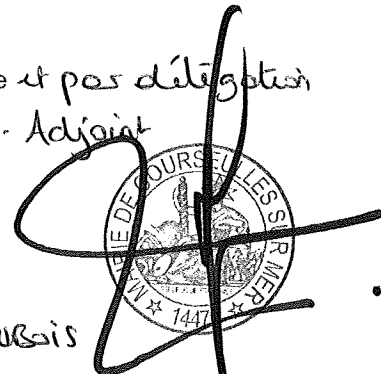 e et par délégation
. Adjoint
MAIRIE DE COURSEULLES SUR MER
1447
UBOIS